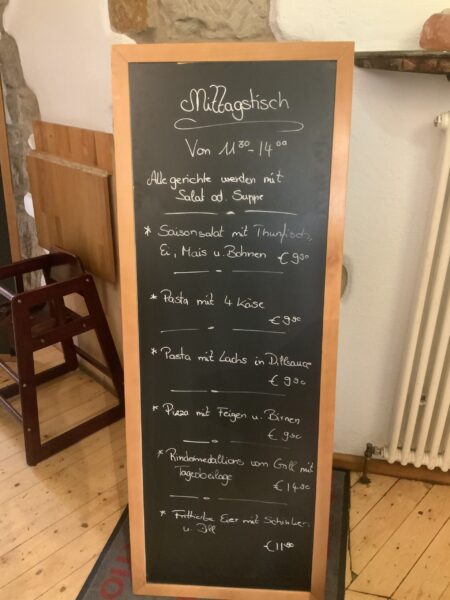 Mittagstisch
Von 11³⁰-14⁰⁰
Alle gerichte werden mit
Salat od. Suppe
* Saisonsalat mit Thunfisch,
Ei, Mais u. Bohnen € 9⁹⁰
* Pasta mit 4 Käse
€ 9⁹⁰
* Pasta mit Lachs in Dillsauce
€ 9⁹⁰
* Pizza mit Feigen u. Birnen
€ 9⁹⁰
* Rindermedallions vom Grill mit
Tagesbeilage € 14⁹⁰
* Eier mit Schinken
u. Dill
€ 11⁹⁰